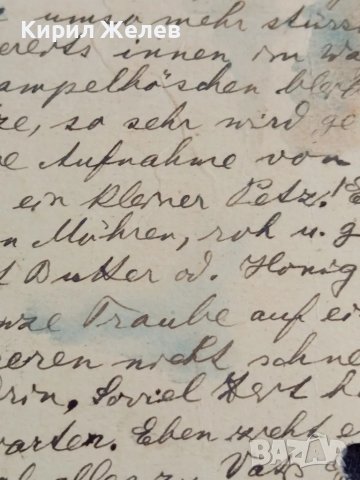 Кирил Желев
umso mehr stürz
bereits innen im Wa
ampelhöschen blei
ze, so sehr wird ge
e Aufnahme von
ein kleiner Petz!
n Möhren, roh u. g
Butter od. Honig
nze Traube auf ei
eeren nicht schne
drin, Soviel Zeit h
arten. Eben zieht e
bazar